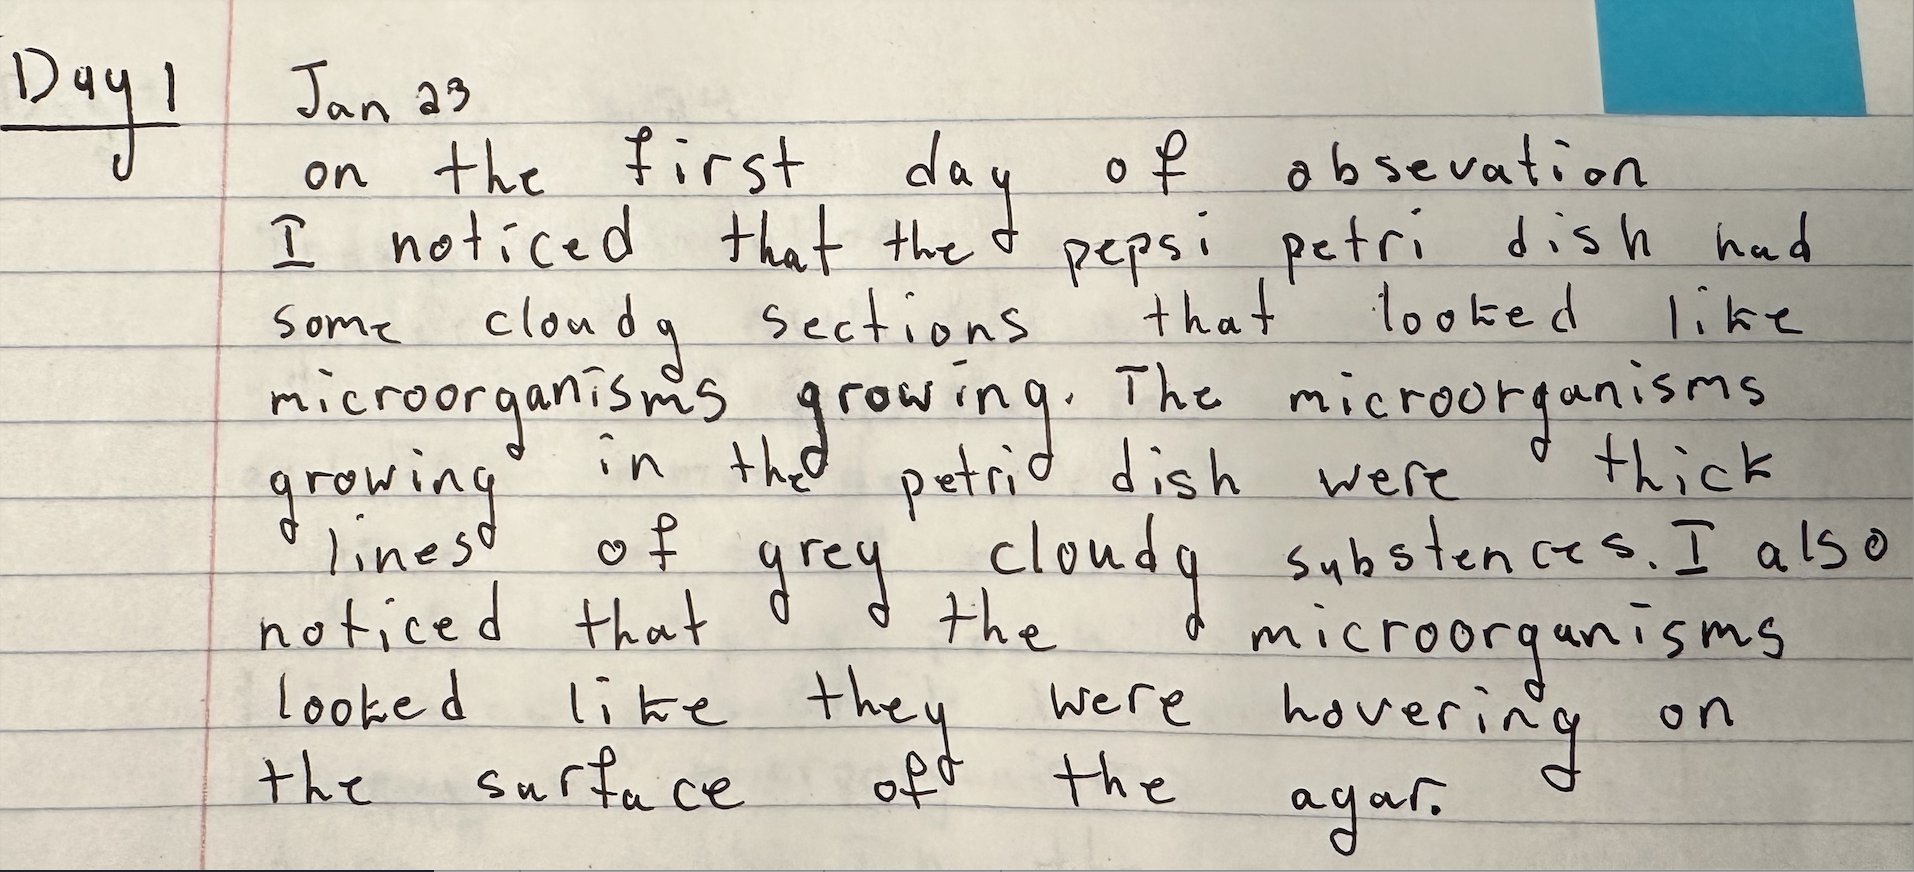 Day 1 Jan 23
on the first day of obsevation
I noticed that the pepsi petri dish had
some cloudy sections that looked like
microorganisms growing. The microorganisms
growing in the petri dish were thick
lines of grey cloudy substences. I also
noticed that the microorganisms
looked like they were hovering on
the surface of the agar.